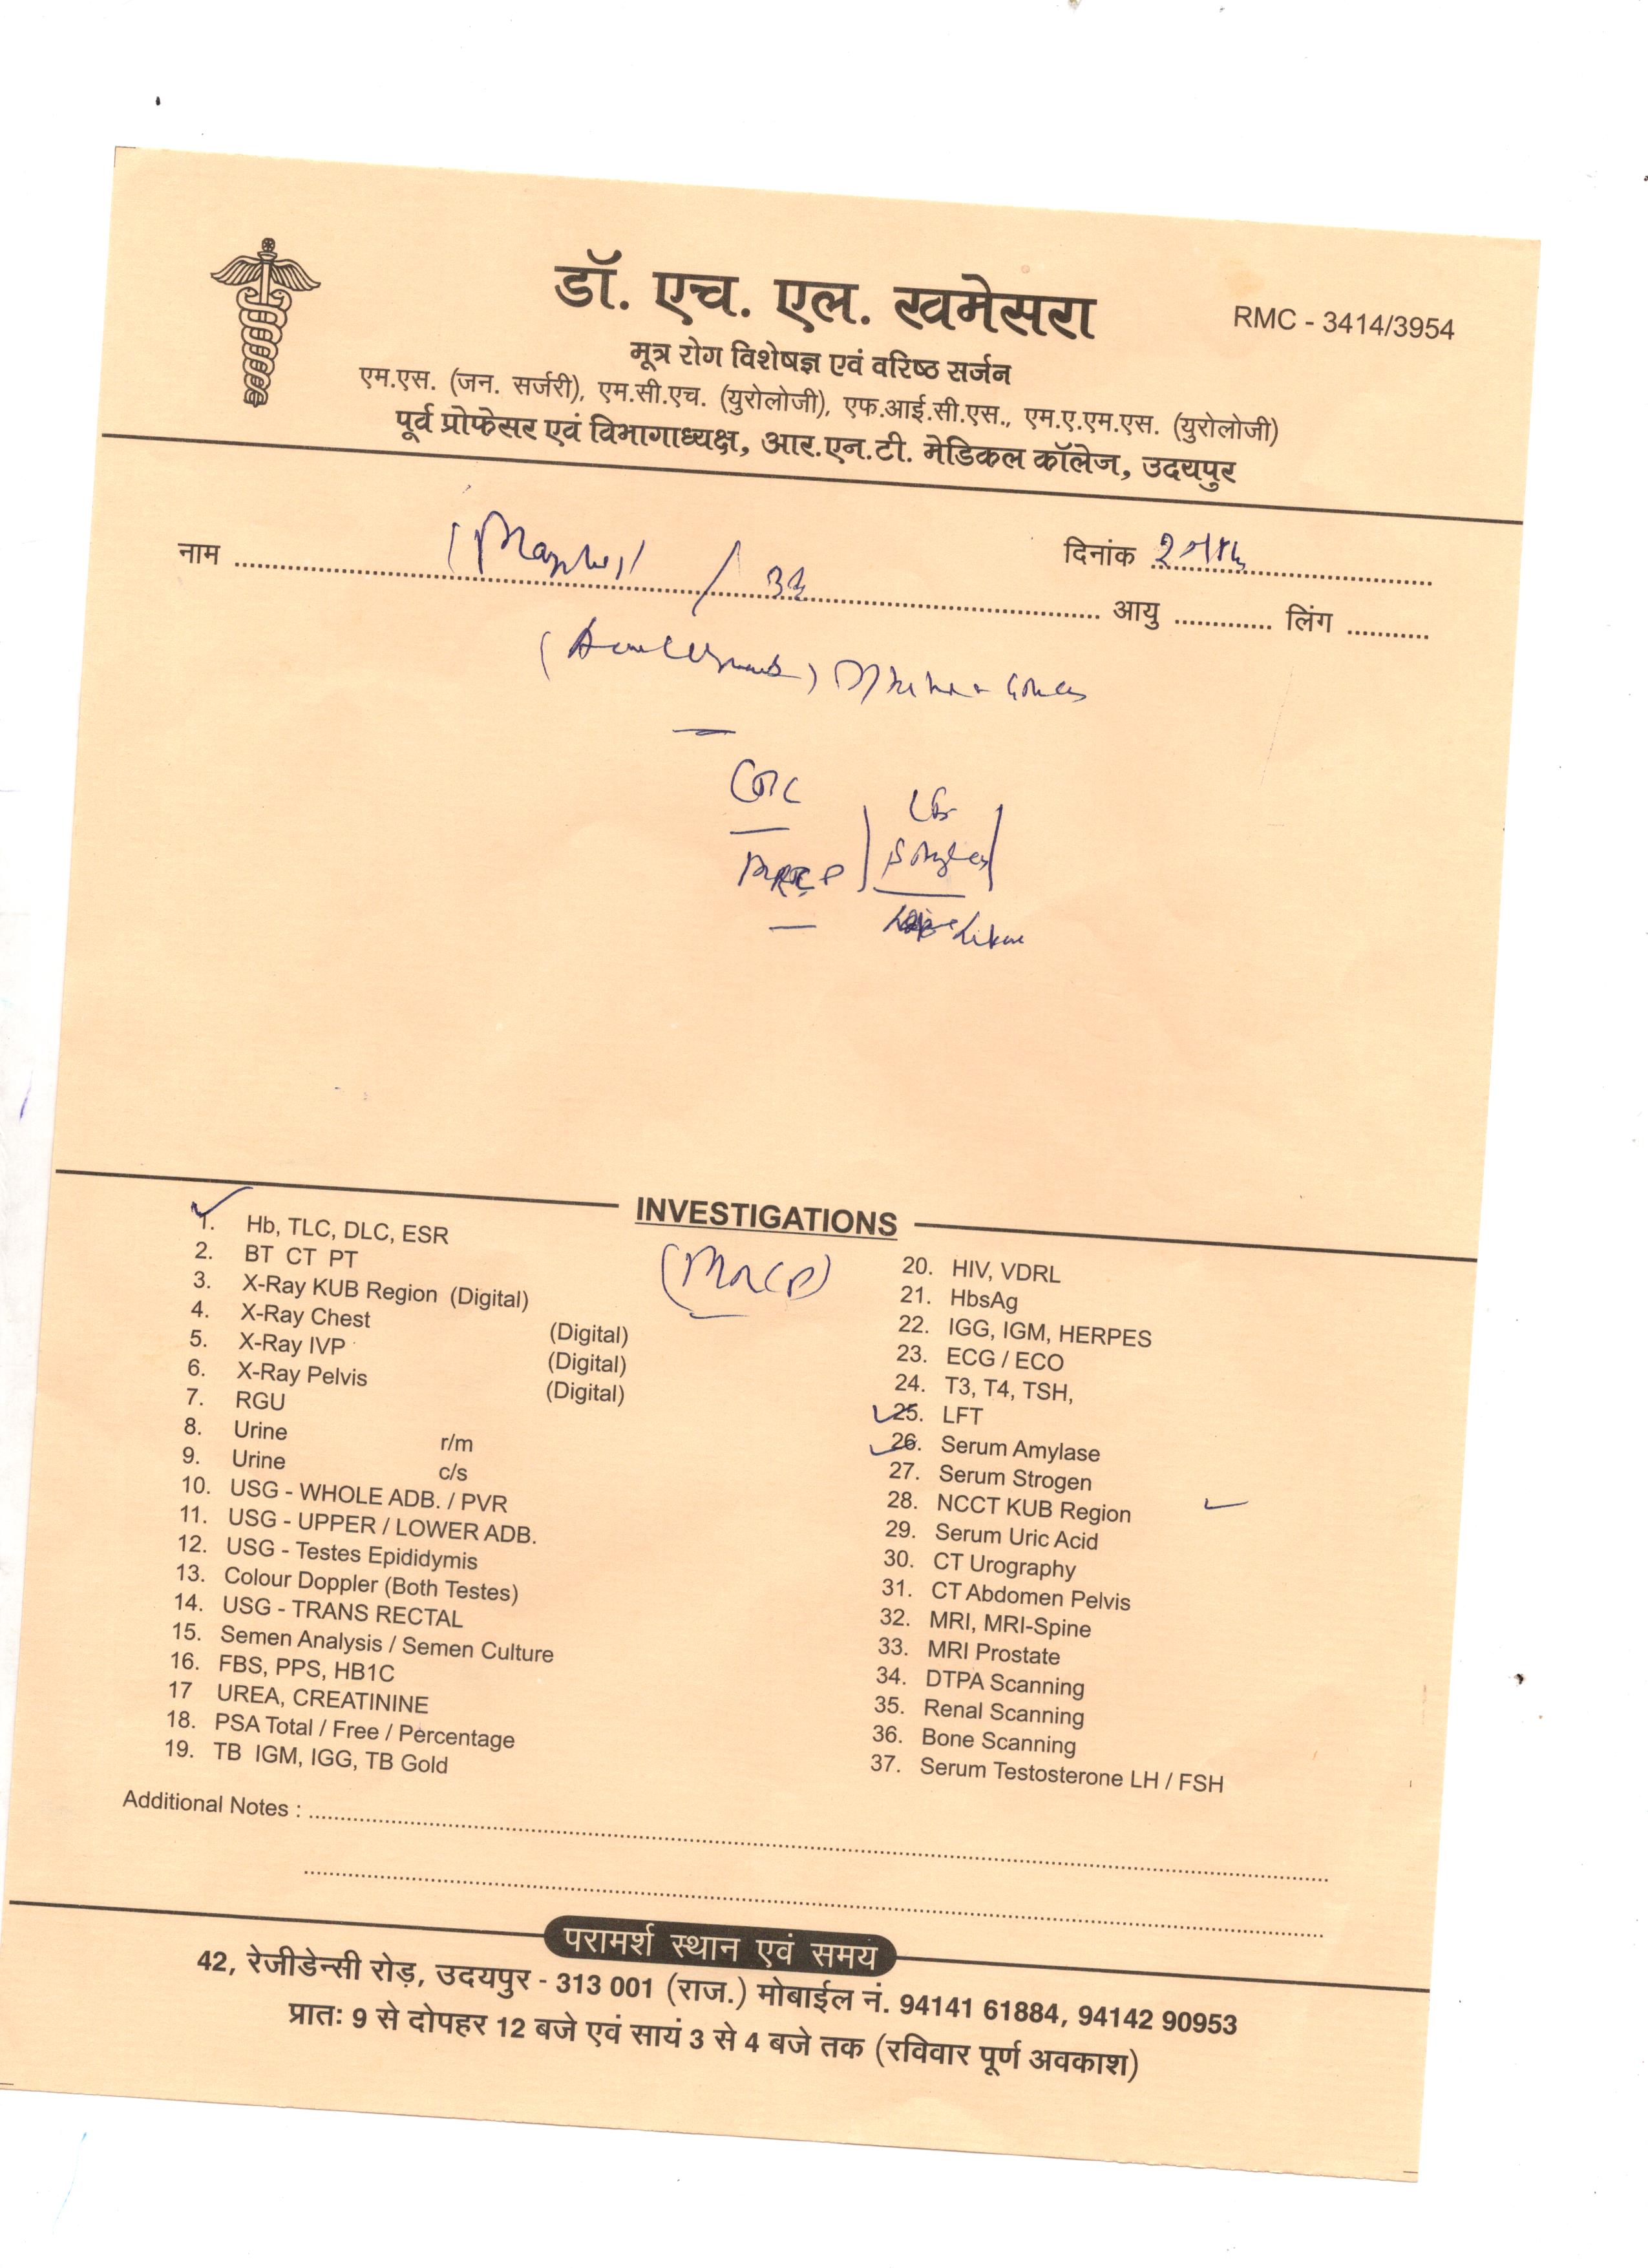 डॉ. एच. एल. खमेसरा
RMC - 3414/3954
मूत्र रोग विशेषज्ञ एवं वरिष्ठ सर्जन
एम.एस. (जन. सर्जरी), एम.सी.एच. (युरोलोजी), एफ.आई.सी.एस., एम.ए.एम.एस. (युरोलोजी)
पूर्व प्रोफेसर एवं विभागाध्यक्ष, आर.एन.टी. मेडिकल कॉलेज, उदयपुर
दिनांक
नाम / आयु लिंग
MRCP
INVESTIGATIONS
(MRCP)
1. Hb, TLC, DLC, ESR
2. BT CT PT
3. X-Ray KUB Region (Digital)
4. X-Ray Chest (Digital)
5. X-Ray IVP (Digital)
6. X-Ray Pelvis (Digital)
7. RGU
8. Urine r/m
9. Urine c/s
10. USG - WHOLE ADB. / PVR
11. USG - UPPER / LOWER ADB.
12. USG - Testes Epididymis
13. Colour Doppler (Both Testes)
14. USG - TRANS RECTAL
15. Semen Analysis / Semen Culture
16. FBS, PPS, HB1C
17 UREA, CREATININE
18. PSA Total / Free / Percentage
19. TB IGM, IGG, TB Gold
20. HIV, VDRL
21. HbsAg
22. IGG, IGM, HERPES
23. ECG / ECO
24. T3, T4, TSH,
25. LFT
26. Serum Amylase
27. Serum Strogen
28. NCCT KUB Region
29. Serum Uric Acid
30. CT Urography
31. CT Abdomen Pelvis
32. MRI, MRI-Spine
33. MRI Prostate
34. DTPA Scanning
35. Renal Scanning
36. Bone Scanning
37. Serum Testosterone LH / FSH
Additional Notes :
परामर्श स्थान एवं समय
42, रेजीडेन्सी रोड़, उदयपुर - 313 001 (राज.) मोबाईल नं. 94141 61884, 94142 90953
प्रातः 9 से दोपहर 12 बजे एवं सायं 3 से 4 बजे तक (रविवार पूर्ण अवकाश)